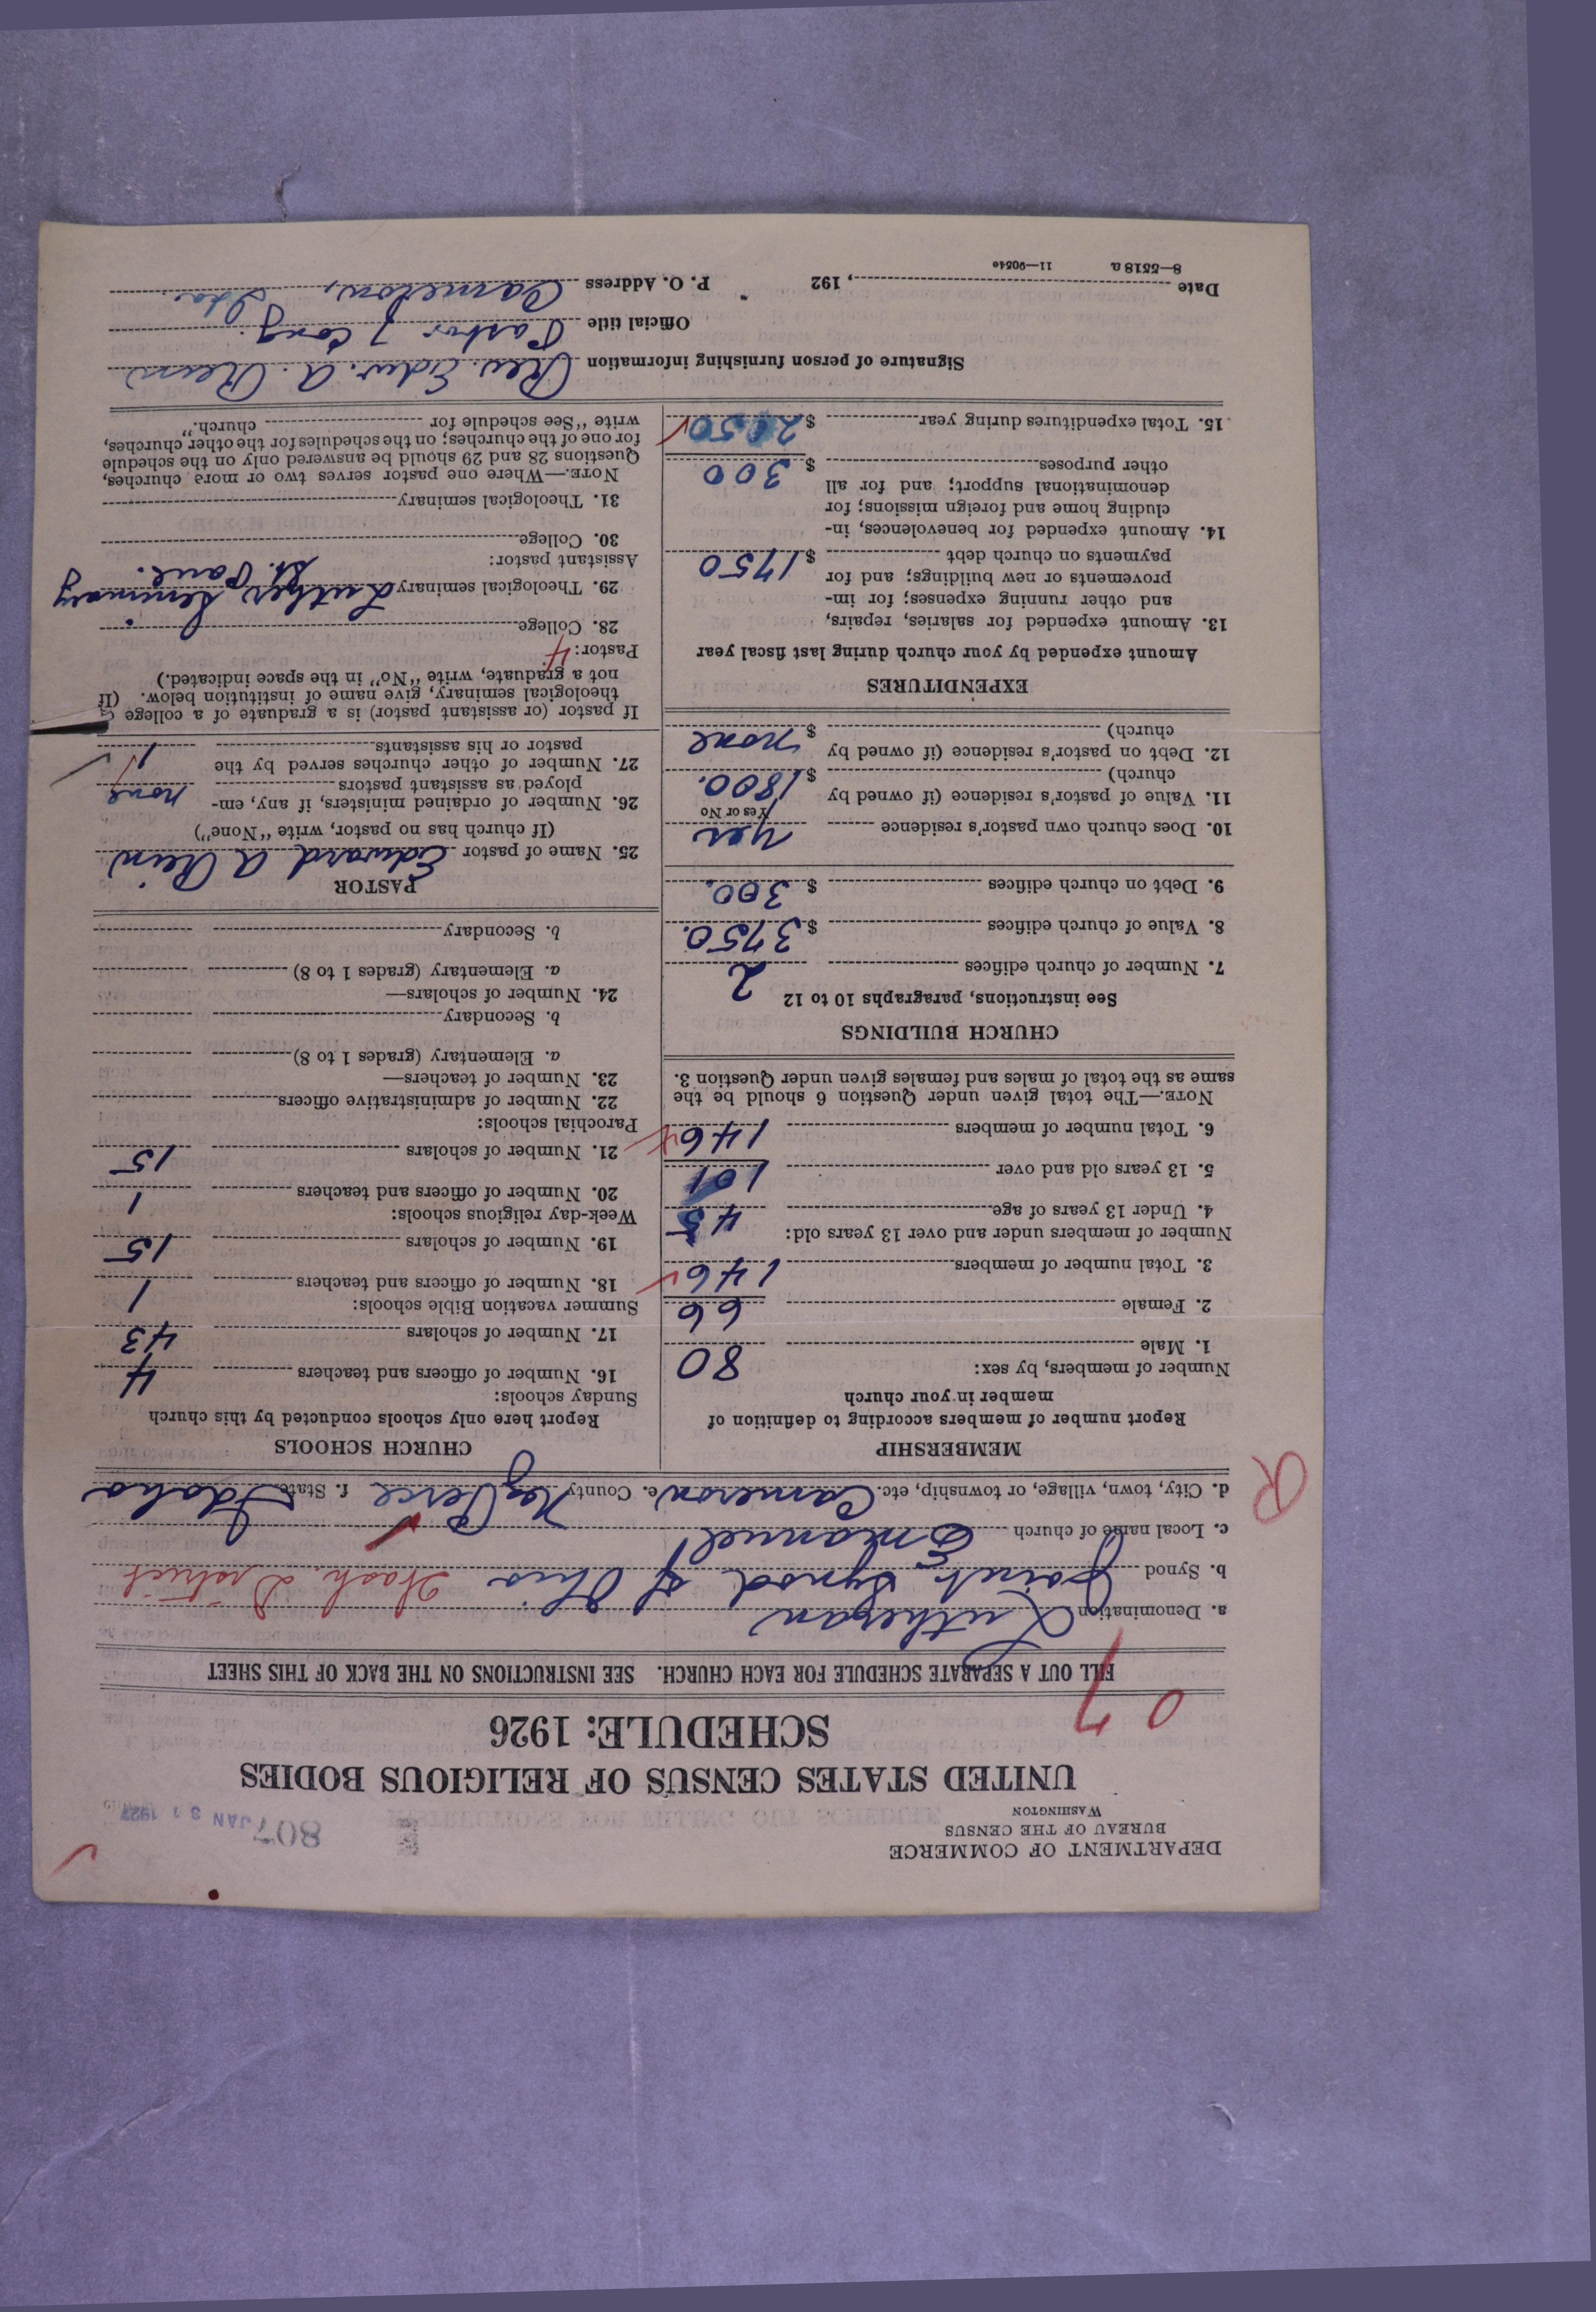 DEPARTMENT OF COMMERCE
BUREAU OF THE CENSUS
WASHINGTON
807 JAN 31 1927
UNITED STATES CENSUS OF RELIGIOUS BODIES
SCHEDULE: 1926
07
FILL OUT A SEPARATE SCHEDULE FOR EACH CHURCH. SEE INSTRUCTIONS ON THE BACK OF THIS SHEET
a. Denomination Lutheran
b. Synod Joint Synod of Ohio Wash. District
c. Local name of church Emanuel
d. City, town, village, or township, etc. Cameron e. County Nez Perce f. State Idaho
R
MEMBERSHIP
Report number of members according to definition of
member in your church
Number of members, by sex:
1. Male 80
2. Female 66
3. Total number of members 146
Number of members under and over 13 years old:
4. Under 13 years of age 45
5. 13 years old and over 101
6. Total number of members 146
NOTE.—The total given under Question 6 should be the
same as the total of males and females given under Question 3.
CHURCH BUILDINGS
See instructions, paragraphs 10 to 12
7. Number of church edifices 2
8. Value of church edifices $ 3750.
9. Debt on church edifices $ 300.
10. Does church own pastor's residence yes
Yes or No
11. Value of pastor's residence (if owned by
church) $ 1800.
12. Debt on pastor's residence (if owned by
church) $ none
EXPENDITURES
Amount expended by your church during last fiscal year
13. Amount expended for salaries, repairs,
and other running expenses; for im-
provements or new buildings; and for
payments on church debt $ 1750
14. Amount expended for benevolences, in-
cluding home and foreign missions; for
denominational support; and for all
other purposes $ 300
15. Total expenditures during year $ 2050
CHURCH SCHOOLS
Report here only schools conducted by this church
Sunday schools:
16. Number of officers and teachers 4
17. Number of scholars 43
Summer vacation Bible schools:
18. Number of officers and teachers 1
19. Number of scholars 15
Week-day religious schools:
20. Number of officers and teachers 1
21. Number of scholars 15
Parochial schools:
22. Number of administrative officers
23. Number of teachers—
a. Elementary (grades 1 to 8)
b. Secondary
24. Number of scholars—
a. Elementary (grades 1 to 8)
b. Secondary
PASTOR
25. Name of pastor Edward A Rein
(If church has no pastor, write "None")
26. Number of ordained ministers, if any, em-
ployed as assistant pastors none
27. Number of other churches served by the
pastor or his assistants 1
If pastor (or assistant pastor) is a graduate of a college
theological seminary, give name of institution below. (If
not a graduate, write "No" in the space indicated.)
Pastor: 4
28. College
29. Theological seminary Luther Seminary
St. Paul.
Assistant pastor:
30. College
31. Theological seminary
NOTE.—Where one pastor serves two or more churches,
Questions 28 and 29 should be answered only on the schedule
for one of the churches; on the schedules for the other churches,
write "See schedule for church."
Signature of person furnishing information Rev. Edw. A. Rein
Official title Pastor of Cong.
Date , 192 P. O. Address Cameron, Ida.
8—5518 a 11—9054e